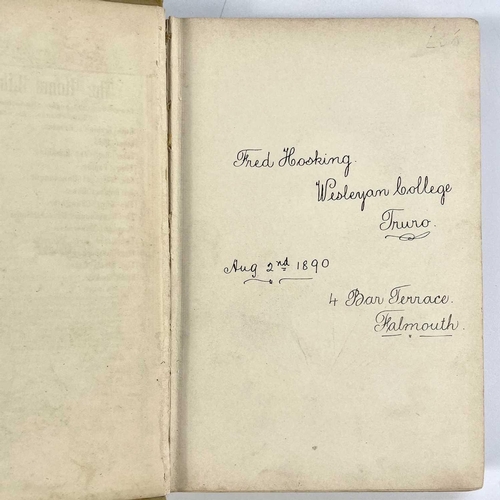 Fred Hosking.
Wesleyan College
Truro.
Aug 2nd 1890
4 Bar Terrace.
Falmouth.